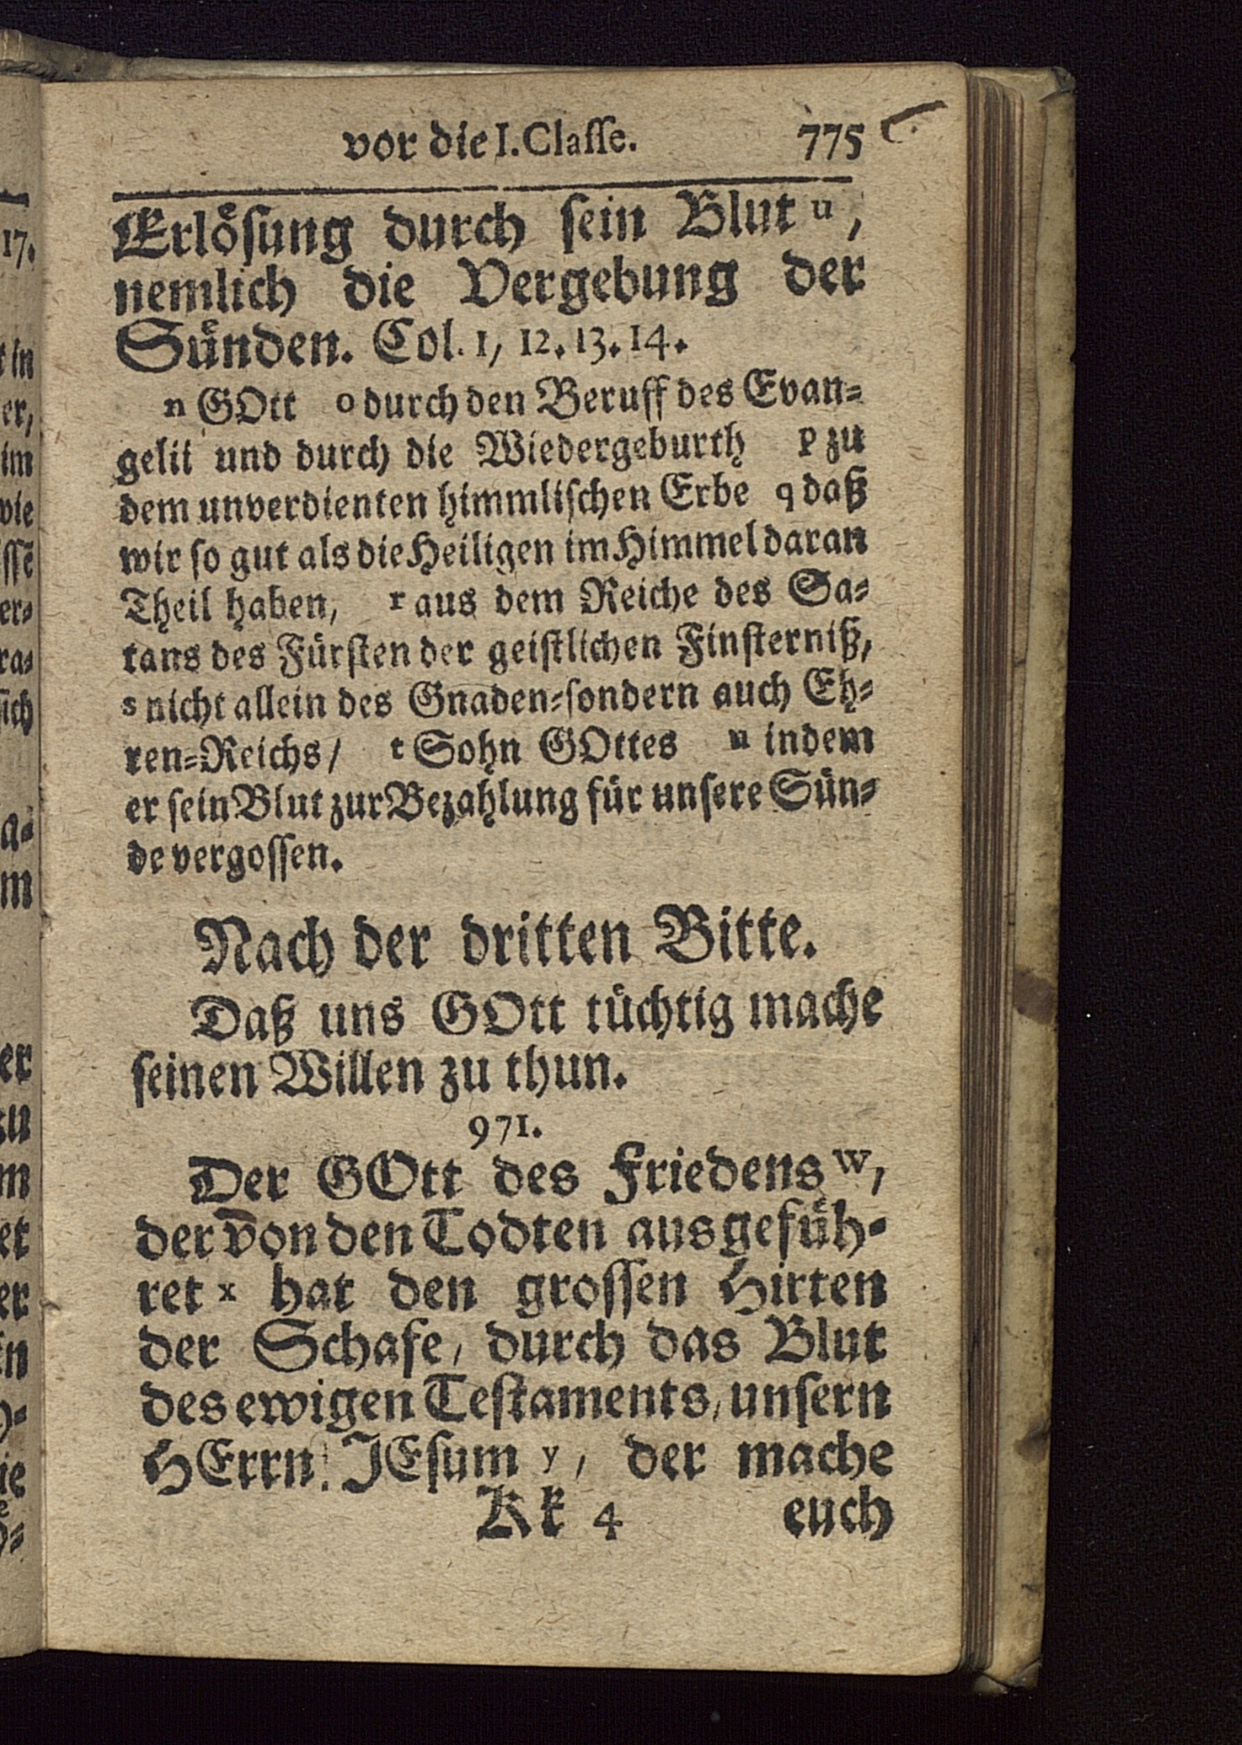 vor die I. Classe. 775
Erlösung durch sein Blut u,
nemlich die Vergebung der
Sünden. Col. 1, 12. 13. 14.
n GOtt o durch den Beruff des Evan-
gelii und durch die Wiedergeburth p zu
dem unverdienten himmlischen Erbe q daß
wir so gut als die Heiligen im Himmel daran
Theil haben, r aus dem Reiche des Sa-
tans des Fürsten der geistlichen Finsterniß,
s nicht allein des Gnaden-sondern auch Eh-
ren-Reichs/ t Sohn GOttes u indem
er sein Blut zur Bezahlung für unsere Sün-
de vergossen.
Nach der dritten Bitte.
Daß uns GOtt tüchtig mache
seinen Willen zu thun.
971.
Der GOtt des Friedens w,
der von den Todten ausgefüh-
ret x hat den grossen Hirten
der Schafe, durch das Blut
des ewigen Testaments, unsern
HErrn JEsum y, der mache
Kk 4 euch